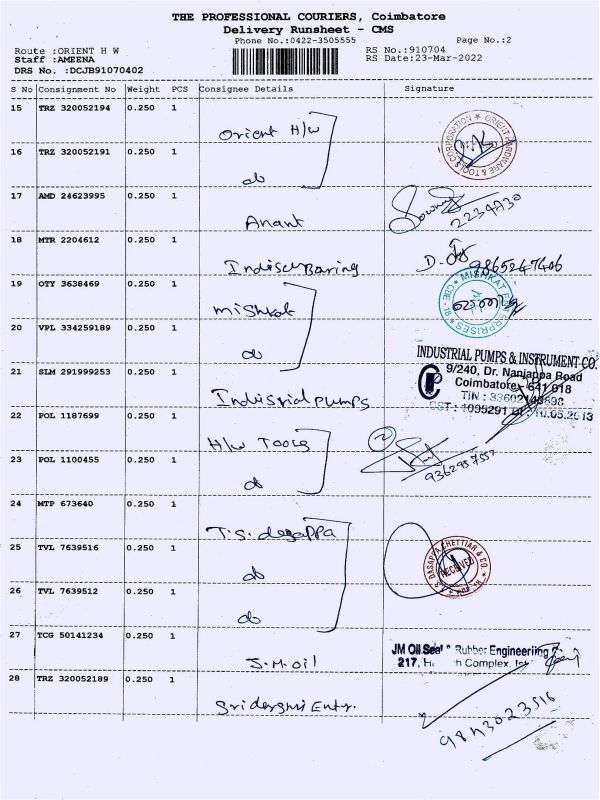 THE PROFESSIONAL COURIERS, Coimbatore
Delivery Runsheet - CMS
Phone No.:0422-3505555
Page No.:2
Route :ORIENT H W
RS No.:910704
Staff :AMEENA
RS Date:23-Mar-2022
DRS No. :DCJB91070402
S No Consignment No Weight PCS Consignee Details Signature
15 TRZ 320052194 0.250 1
Orient H/w
ORIENT HARDWARE & TOOLS CORPORATION
16 TRZ 320052191 0.250 1
do
17 AMD 24623995 0.250 1
Anant
18 MTR 2204612 0.250 1
D.
9865247406
19 OTY 3638469 0.250 1
mishkat
MISHKAT ENTERPRISES
CBE - 18
20 VPL 334259189 0.250 1
do
21 SLM 291999253 0.250 1
Indusrial pumps
INDUSTRIAL PUMPS & INSTRUMENT CO.
9/240, Dr. Nanjappa Road
Coimbatore - 641 018
22 POL 1187699 0.250 1
H/w Tools
2
23 POL 1100455 0.250 1
do
24 MTP 673640 0.250 1
T.S. dasappa
25 TVL 7639516 0.250 1
do
DASAPPA CHETTIAR & CO.
RECEIVED
26 TVL 7639512 0.250 1
do
27 TCG 50141234 0.250 1
J.M.oil
JM Oil Seal Rubber Engineering
217, Complex,
28 TRZ 320052189 0.250 1
9843023516